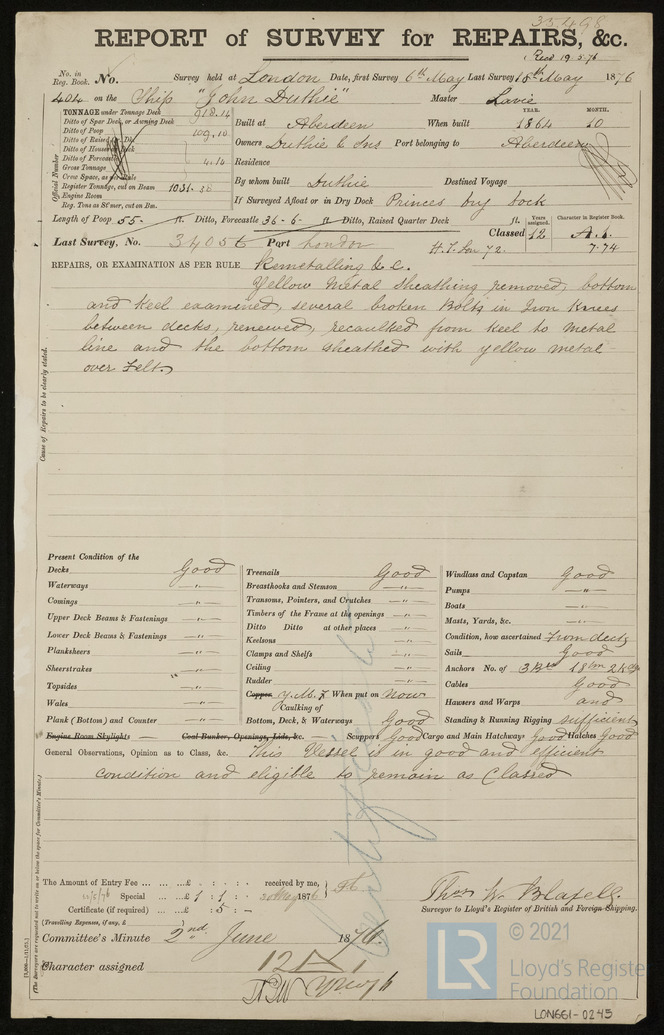 35498
REPORT of SURVEY for REPAIRS, &c.
Recd 19.5.76
No. in Reg. Book. No. Survey held at London Date, first Survey 6th May Last Survey 15th May 1876
404 on the Ship "John Duthie" Master Lavie
TONNAGE under Tonnage Deck 918.14
Ditto of Spar Deck, or Awning Deck
Ditto of Poop 109.10
Ditto of Raised Qr. Dk.
Ditto of Houses on Deck
Ditto of Forecastle 4.14
Gross Tonnage
Crew Space, as per Rule
Register Tonnage, cut on Beam 1031.38
Engine Room
Reg. Tons as St'mer, cut on Bm.
Official Number
YEAR. MONTH.
Built at Aberdeen When built 1864 10
Owners Duthie & Sns Port belonging to Aberdeen
Residence
By whom built Duthie Destined Voyage
If Surveyed Afloat or in Dry Dock Princes Dry Dock
Length of Poop 55- ft. Ditto, Forecastle 36-6- ft Ditto, Raised Quarter Deck ft.
Classed Years assigned. 12 Character in Register Book. A.1. 7.74
Last Survey, No. 34056 Port London
REPAIRS, OR EXAMINATION AS PER RULE Remetalling &c.
Yellow Metal sheathing removed, bottom
and keel examined, several broken Bolts in Iron Knees
between decks, renewed, recaulked from keel to metal
line and the bottom sheathed with yellow metal
over Felt.
Cause of Repairs to be clearly stated.
Present Condition of the
Decks Good
Waterways — " —
Comings — " —
Upper Deck Beams & Fastenings — " —
Lower Deck Beams & Fastenings — " —
Planksheers — " —
Sheerstrakes — " —
Topsides — " —
Wales — " —
Plank (Bottom) and Counter — " —
Engine Room Skylights — Coal Bunker, Openings, Lids, &c. —
Treenails Good
Breasthooks and Stemson — " —
Transoms, Pointers, and Crutches — " —
Timbers of the Frame at the openings — " —
Ditto Ditto at other places — " —
Keelsons — " —
Clamps and Shelfs — " —
Ceiling — " —
Rudder — " —
Copper Y.M.F When put on Now
Caulking of
Bottom, Deck, & Waterways Good
Scuppers Good Cargo and Main Hatchways Good Hatches Good
Windlass and Capstan Good
Pumps — " —
Boats — " —
Masts, Yards, &c. — " —
Condition, how ascertained From deck
Sails Good
Anchors No. of
Cables Good
Hawsers and Warps and
Standing & Running Rigging sufficient
General Observations, Opinion as to Class, &c. This Vessel is in good and efficient
condition and eligible to remain as Classed
The Amount of Entry Fee ... ... ... £ : : received by me,
Special ... £ 1 : 1 : 1876
Certificate (if required) ... £ : 5 : -
(Travelling Expenses, if any, £ )
Thos W. Blaxell.
Surveyor to Lloyd's Register of British and Foreign Shipping.
Committee's Minute 2nd June 1876.
Character assigned 12 A 1
(The Surveyors are requested not to write on or below the space for Committee's Minute.)
© 2021
LR
Lloyd's Register
Foundation
LON661-0245